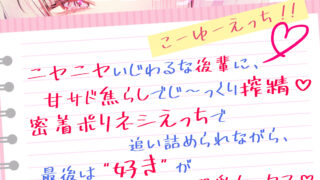 こーゆーえっち!!
ニヤニヤいじわるな後輩に、
甘サド焦らしでじ〜っくり搾精♡
密着ポリネシえっちで
追い詰められながら、
最後は"好き"が